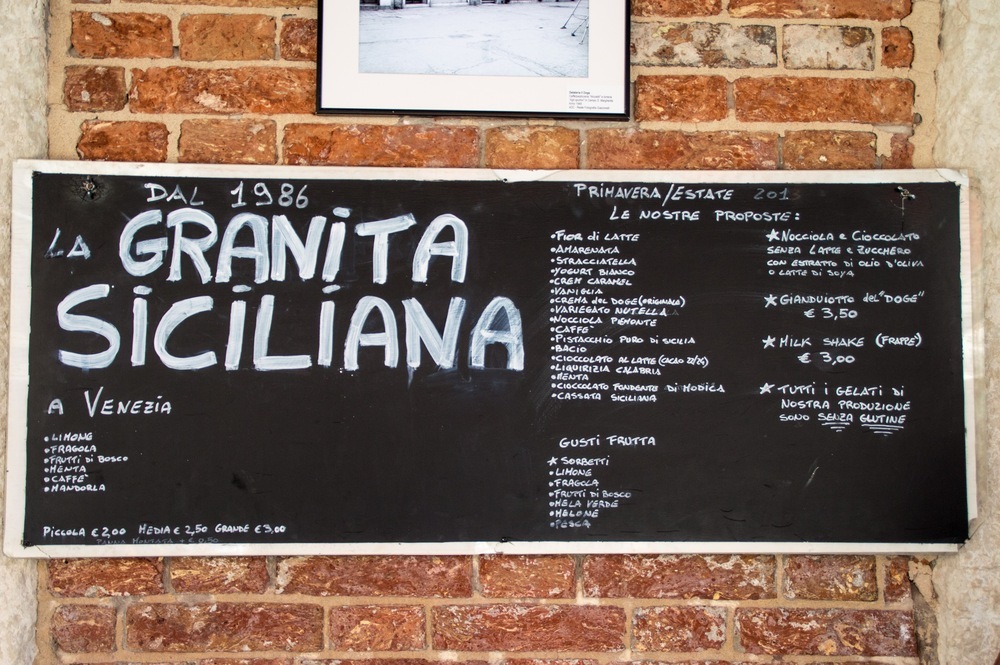 DAL 1986
LA GRANITA
SICILIANA
A VENEZIA
•LIMONE
•FRAGOLA
•FRUTTI DI BOSCO
•MENTA
•CAFFE'
•MANDORLA
PICCOLA € 2,00 MEDIA € 2,50 GRANDE € 3,00
PANNA MONTATA + € 0,50
PRIMAVERA/ESTATE 201
LE NOSTRE PROPOSTE:
•FIOR di LATTE
•AMARENATA
•STRACCIATELLA
•YOGURT BIANCO
•CREM CARAMEL
•VANIGLIA
•CREMA del DOGE (ORIGINALE)
•VARIEGATO NUTELLA
•NOCCIOLA PIEMONTE
•CAFFE'
•PISTACCHIO PURO DI SICILIA
•BACIO
•CIOCCOLATO AL LATTE (CACAO 22/26)
•LIQUIRIZIA CALABRIA
•MENTA
•CIOCCOLATO FONDENTE DI MODICA
•CASSATA SICILIANA
GUSTI FRUTTA
★ SORBETTI
•LIMONE
•FRAGOLA
•FRUTTI DI BOSCO
•MELA VERDE
•MELONE
•PESCA
★ NOCCIOLA e CIOCCOLATO
SENZA LATTE e ZUCCHERO
CON ESTRATTO DI OLIO D'OLIVA
O LATTE DI SOYA
★ GIANDUIOTTO del "DOGE"
€ 3,50
★ MILK SHAKE (FRAPPÈ)
€ 3,00
★ TUTTI I GELATI DI
NOSTRA PRODUZIONE
SONO SENZA GLUTINE